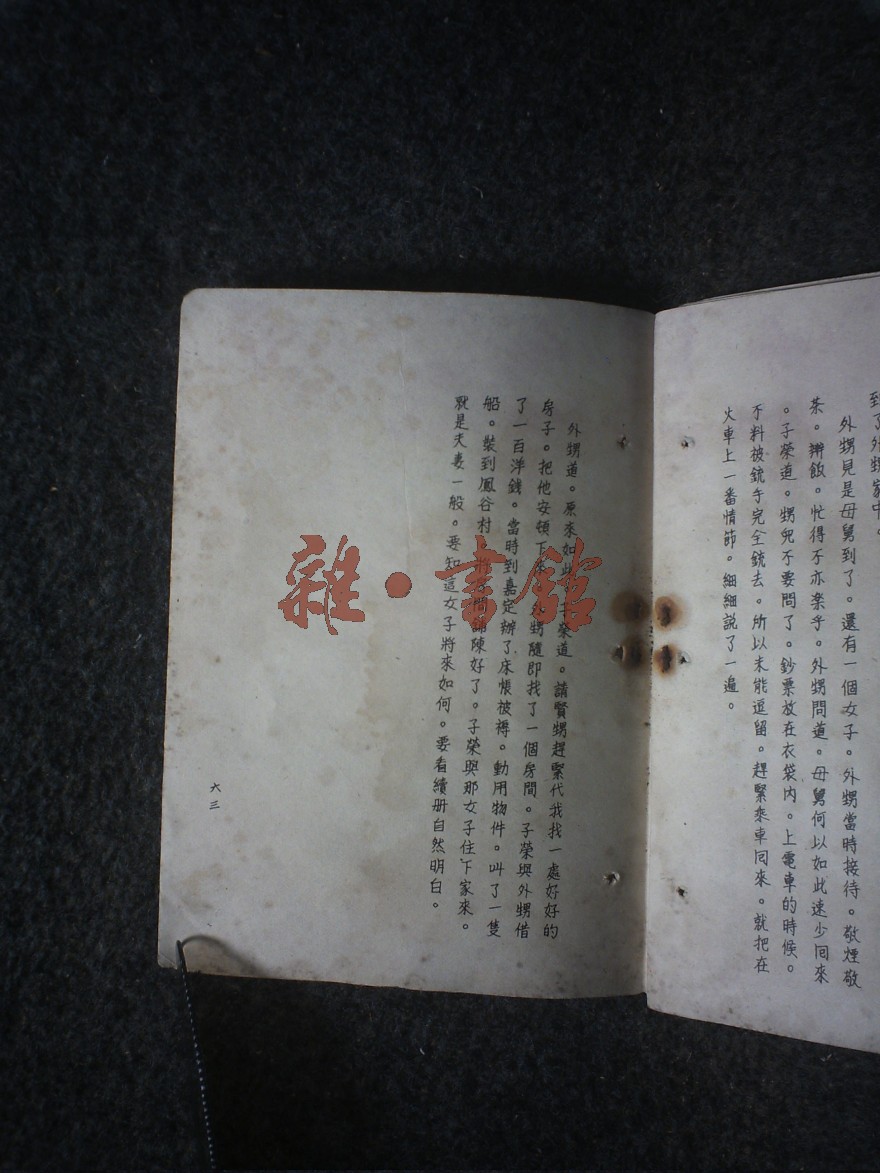 到了外甥家中。
外甥見是母舅到了。還有一個女子。外甥當時接待。敬煙敬
茶。辦飯。忙得不亦楽乎。外甥問道。母舅何以如此速少囘來
。子榮道。甥兒不要問了。鈔票放在衣袋內。上電車的時候。
不料被銃手完全銃去。所以未能逗留。趕緊乘車同來。就把在
火車上一番情節。細細説了一遍。
外甥道。原來如此。子榮道。請賢甥趕緊代我找一處好好的
房子。把他安頓下來。外甥隨即找了一個房間。子榮與外甥借
了一百洋錢。當時到嘉定辦了床帳被褥。動用物件。叫了一隻
船。裝到鳳谷村。將房間鋪陳好了。子榮與那女子住下家來。
就是夫妻一般。要知這女子將來如何。要看續册自然明白。
六三
雜·書館